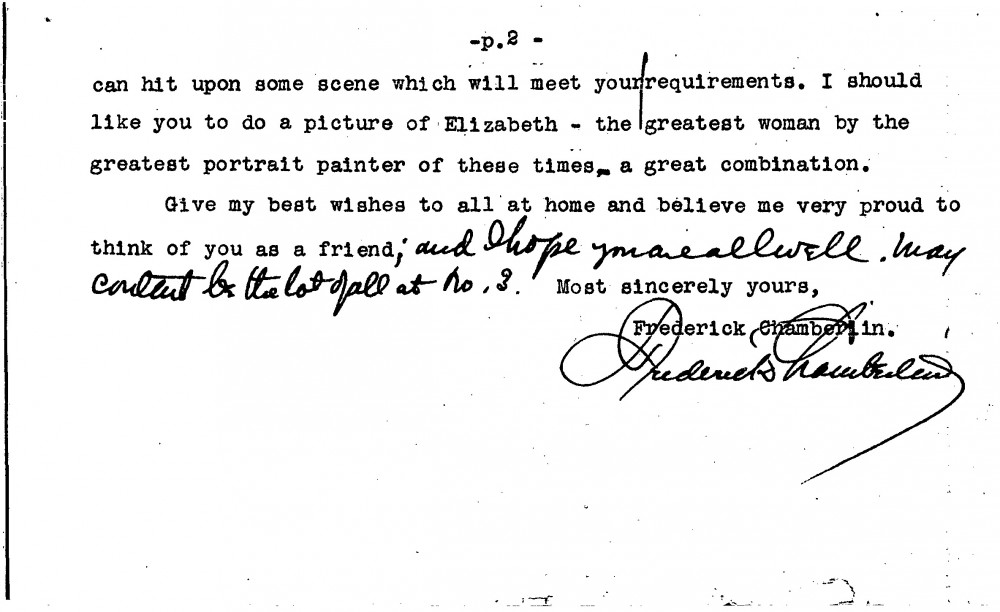 -p.2 -
can hit upon some scene which will meet your requirements. I should
like you to do a picture of Elizabeth - the greatest woman by the
greatest portrait painter of these times- a great combination.
Give my best wishes to all at home and believe me very proud to
think of you as a friend; and I hope you are all well. May
content be the lot of all at No. 3. Most sincerely yours,
Frederick Chamberlin.
Frederick Chamberlin